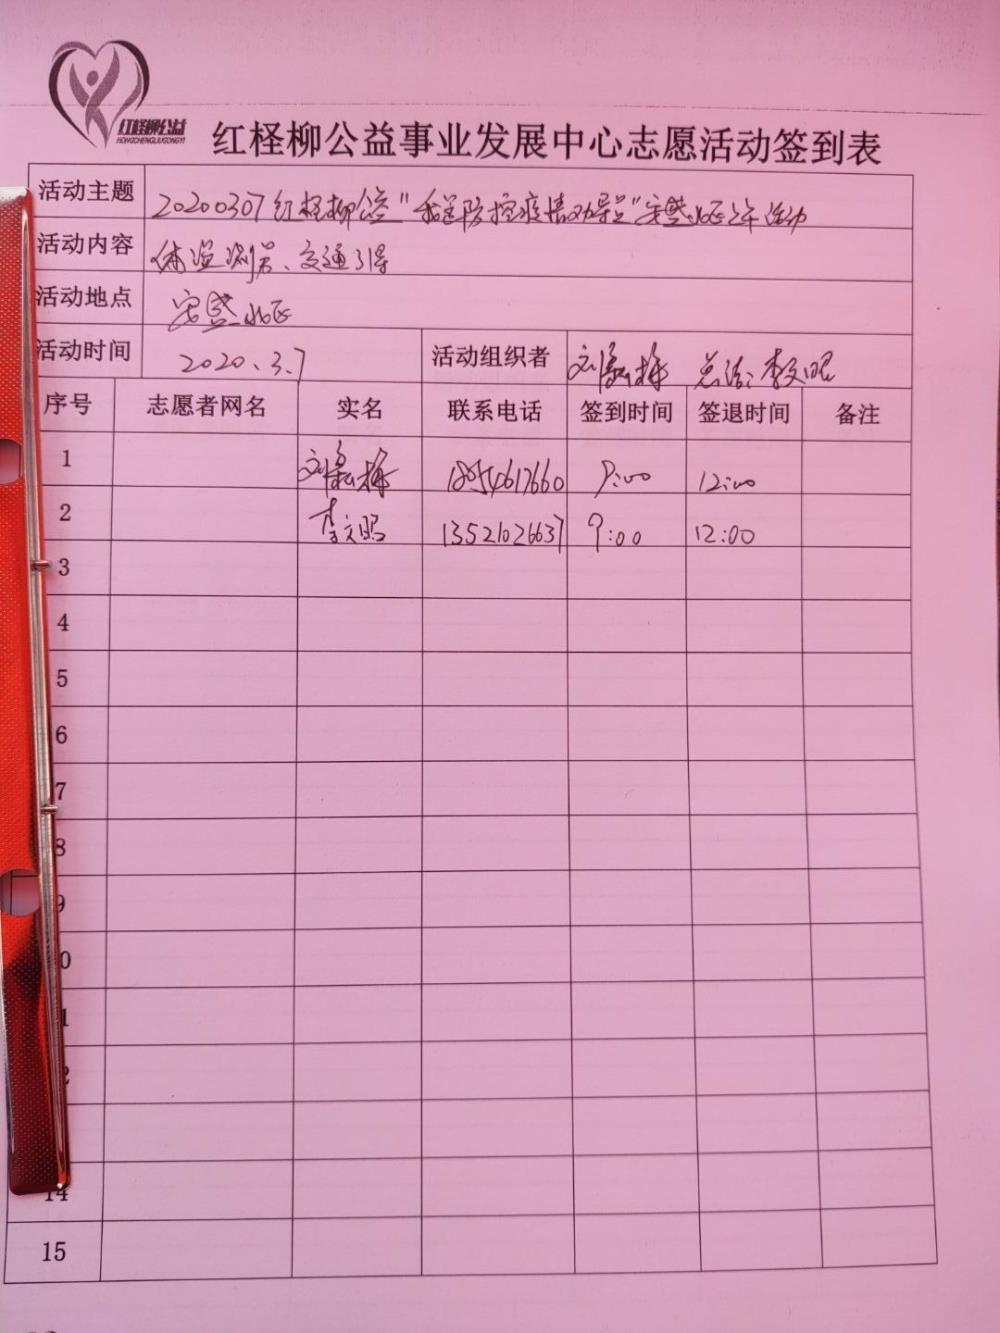 红柽柳公益
HONGCHENGLIUGONGYI
红柽柳公益事业发展中心志愿活动签到表
活动主题 20200307红柽柳公益"社区防控疫情劝导员"安盛北区上午活动
活动内容 体温测量、交通引导
活动地点 安盛北区
活动时间 2020.3.7 活动组织者 刘 梅 总结:李文昭
序号 志愿者网名 实名 联系电话 签到时间 签退时间 备注
1 刘 梅 18054617660 9:00 12:00
2 李文昭 13521026637 9:00 12:00
3
4
5
6
7
8
9
0
1
2
14
15